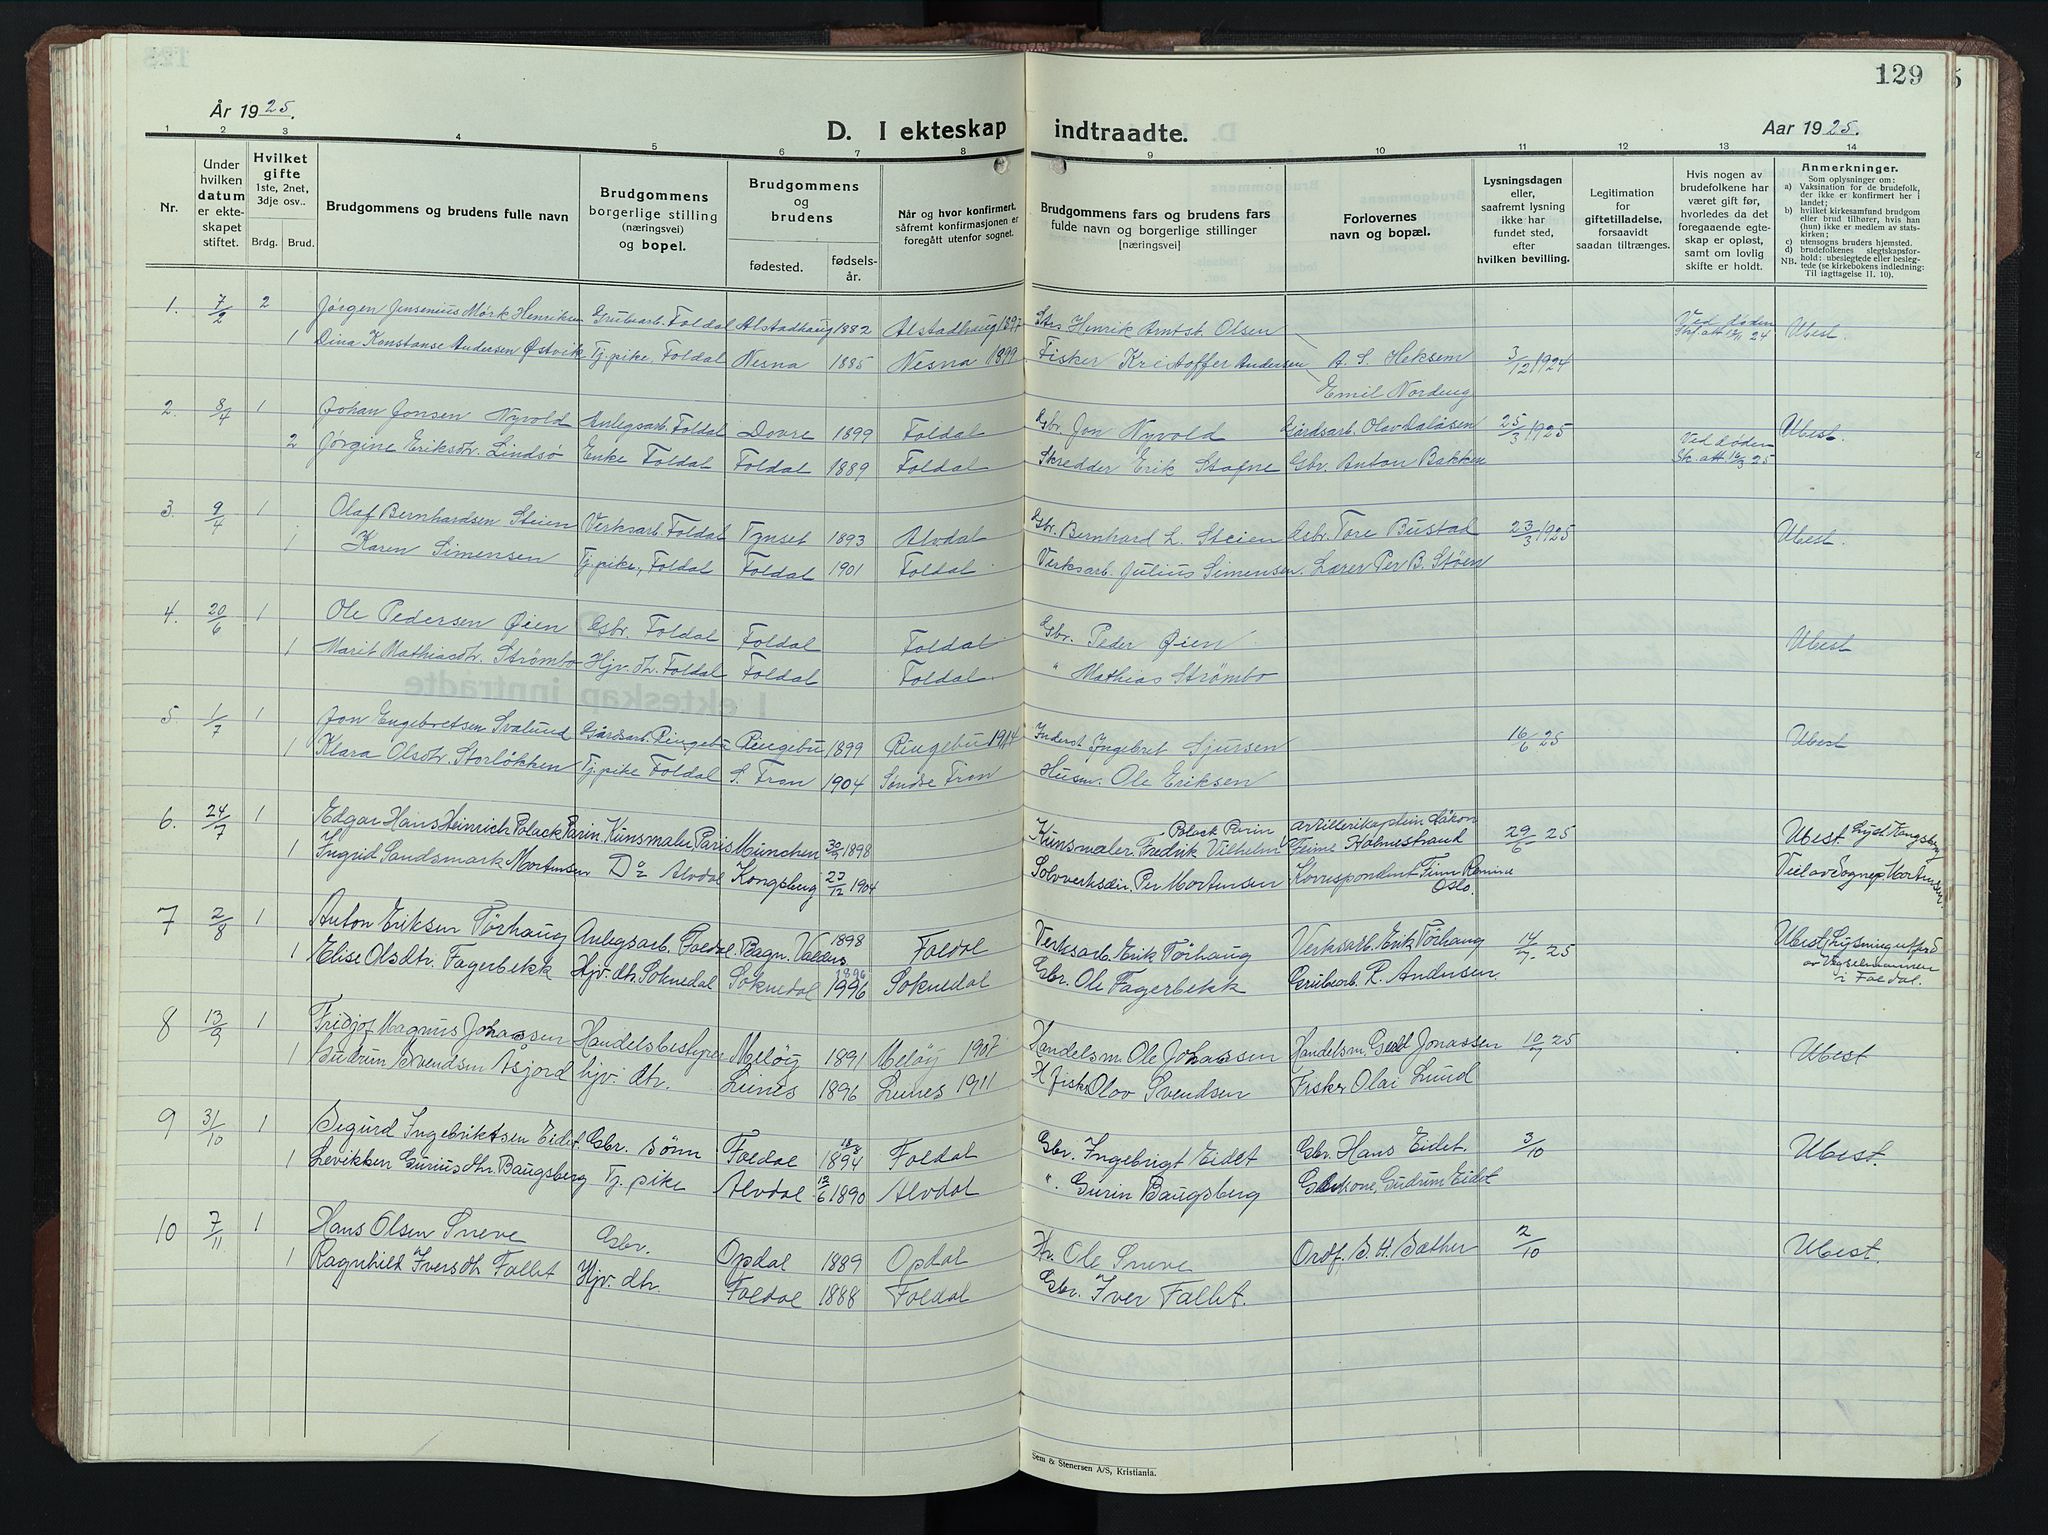 År 1925.
D. I ekteskap indtraadte.
Aar 1925.
129
1 2 3 4 5 6 7 8 9 10 11 12 13 14
Nr.
Under hvilken datum er ekteskapet stiftet.
Hvilket gifte 1ste, 2net, 3dje osv..
Brdg. Brud.
Brudgommens og brudens fulle navn
Brudgommens borgerlige stilling (næringsvei) og bopel.
Brudgommens og brudens
fødested. fødselsår.
Når og hvor konfirmert, såfremt konfirmasjonen er foregått utenfor sognet.
Brudgommens fars og brudens fars fulde navn og borgerlige stillinger [næringsvei]
Forlovernes navn og bopæl.
Lysningsdagen eller, saafremt lysning ikke har fundet sted, efter hvilken bevilling.
Legitimation for giftetilladelse, forsaavidt saadan tiltrænges.
Hvis nogen av brudefolkene har været gift før, hvorledes da det foregaaende egteskap er opløst, samt om lovlig skifte er holdt.
Anmerkninger.
Som oplysninger om:
a) Vaksination for de brudefolk, der ikke er konfirmert her i landet;
b) hvilket kirkesamfund brudgom eller brud tilhører, hvis han (hun) ikke er medlem av statskirken;
c) utensogns bruders hjemsted.
d) brudefolkenes slegtskapsforhold: ubeslegtede eller beslegtede (se kirkebokens indledning: Til iagttagelse II. 10).
NB.
1. 7/2 2 Jørgen Jensenius Mørk Henriksen Grubearb. Foldal Alstadhaug 1882 Alstadhaug 1897 Henrik Arntst. Olsen Ved døden Skf. att. 12/11 24 Ubest.
1 Dina Konstanse Andersen Østvik Tj. pike. Foldal Nesna 1885 Nesna 1899 Fisker Kristoffer Andersen A. S. Heksem 3/12 1924
Emil Nordeng
2. 8/4 1 Johan Jonsen Nyvold Anlegsarb. Foldal Dovre 1899 Foldal Gbr. Jon Nyvold Gårdsarb. Olav Dalåsen 25/3 1925 Ubest.
2 Jørgine Eriksdtr. Lindsø Enke Foldal Foldal 1889 Foldal Skredder Erik Stafne Gbr. Anton Bakken Ved døden Sk. att. 16/3 25
3. 9/4 1 Olaf Bernhardsen Steien Verksarb. Foldal Tynset 1893 Alvdal Gbr. Bernhard L. Steien Gbr. Tore Bustad 23/3 1925 Ubest.
1 Karen Simensen Tj. pike, Foldal Foldal 1901 Foldal Verksarb. Julius Simensen. Lærer Per B. Støen
4. 20/6 1 Ole Pedersen Øien Gbr. Foldal Foldal Foldal Gbr. Peder Øien Ubest
1 Marit Mathiasdtr. Strømbo Hjv. dtr. Foldal Foldal Foldal. " Mathias Strømbo
5. 1/7 1 Jon Engebretsen Svalund Gårdsarb. Ringebu Ringebu 1899 Ringebu 1914 Inderst Ingebret Sjursen 16/6 25 Ubest
1 Klara Olsdtr. Storløkken Tj. pike Foldal S. Fron 1904 Søndre Fron Husm. Ole Eriksen
6. 24/7 1 Edgar Hans Heinrich Polack Parin Kunsmaler Paris München 30/9 1898 Kunsmaler Fredrik Vilhelm Polack Parin Artillerikaptein Håkon Holmestrand 29/6 25 Ubest. Lyst Kongsberg
1 Ingrid Sandsmark Mortensen Do Alvdal Kongsberg 27/12 1904 Sølvverksdir. Per Mortensen Korrespondent Finn Oslo. Viel av Sognep. Mortensen.
7 2/8 1 Anton Eriksen Tørhaug Anlegsarb. Foldal. Bagn. Valdres 1898 Foldal Verksarb. Erik Tørhaug Verksarb. Erik Tørhaug 14/7 25 Ubest. Lysning utferd. av Vigselmannen i Foldal.
1 Elise Olsdtr. Fagerbekk Hjv. dtr. Soknedal Soknedal 1896 1996 Soknedal Gbr. Ole Fagerbekk Grubearb. R. Andersen
8 13/9 1 Fridjof Magnus Johanssen Handelsbestyrer Meløy 1891 Meløy 1907 Handelsm. Ole Johanssen Handelsm. Jonassen 10/7 25 Ubest
1 Gudrun Svendsen Åsjord hjv. dtr. Leines 1896 Leines 1911 Fisker Olav Svendsen Fisker Olai Lund
9 31/10 1 Sigurd Ingebriktsen Eidet Gbr. sønn Foldal 18/8 1894 Foldal Gbr. Ingebrigt Eidet Gbr. Hans Eidet. 3/10 Ubest.
1 Levikken Guriusdtr. Baugsberg Tj. pike Alvdal 12/6 1890 Alvdal ". Gurin Baugsberg Gudrun Eidet
10 7/11 1 Hans Olsen Sneve Gbr. Opdal 1889 Opdal Ole Sneve Ordf. S. H. Sæther 2/10 Ubest.
1 Ragnhild Iversdtr Fallet Hjv. dtr. Foldal 1888 Foldal Gbr. Iver Fallet.
Sem & Stenersen A/S, Kristiania.